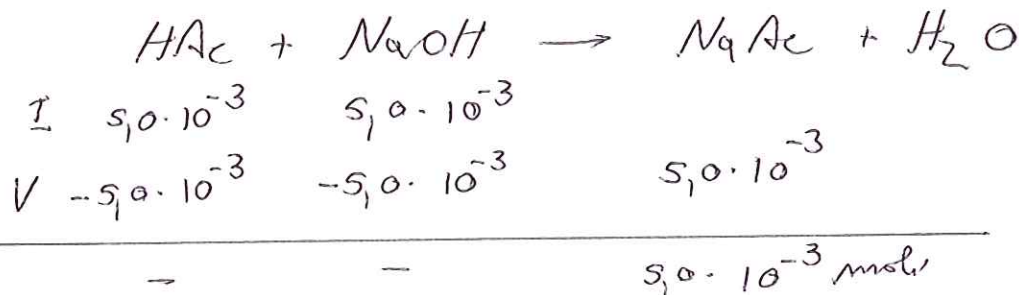 HAc + NaOH → NaAc + H₂O
I 5,0·10⁻³ 5,0·10⁻³
V -5,0·10⁻³ -5,0·10⁻³ 5,0·10⁻³
- - 5,0·10⁻³ moli